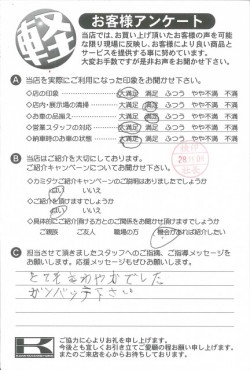 軽
お客様アンケート
当店では、お買い上げ頂いたお客様の声を可能
な限り現場に反映し、お客様により良い商品と
サービスを提供する事に努めています。
大変お手数ですが是非お声をお聞かせ下さい。
A 当店を実際にご利用になった印象をお聞かせ下さい。
◇店の印象 大満足 満足 ふつう やや不満 不満
◇店内・展示場の清掃 大満足 満足 ふつう やや不満 不満
◇お車の品揃え 大満足 満足 ふつう やや不満 不満
◇営業スタッフの対応 大満足 満足 ふつう やや不満 不満
◇納車時のお車の状態 大満足 満足 ふつう やや不満 不満
B 当店はご紹介を大切にしております。
ご紹介キャンペーンについてお聞かせ下さい。
◇カミタケご紹介キャンペーンのご説明はありましたでしょうか
はい いいえ
◇ご紹介を頂けますでしょうか
はい いいえ
◇具体的にご紹介頂ける方とのご関係をお聞かせ頂けますでしょうか
ご親族 ご友人 職場の方 機会があれば紹介したい
C 担当させて頂きましたスタッフへのご指摘、ご指導メッセージを
お願いします。応援メッセージもぜひお願いします。
とてもさわやかでした
ガンバッテ下さい
K
ご協力に心よりお礼を申し上げます。
今後とも宜しくお引き立てご愛顧の程お願い申し上げます。
またのご来店を心からお待ちしております。